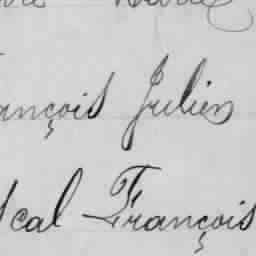 ançois Julien
scal François